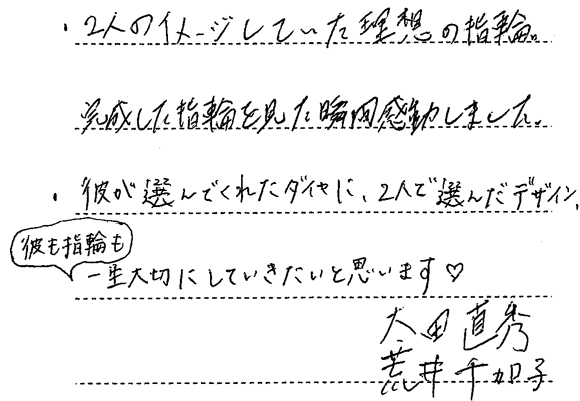 ・2人のイメージしていた理想の指輪。
完成した指輪を見た瞬間感動しました。
・彼が選んでくれたダイヤに、2人で選んだデザイン、
彼も指輪も
一生大切にしていきたいと思います♡
太田直秀
荒井千加子